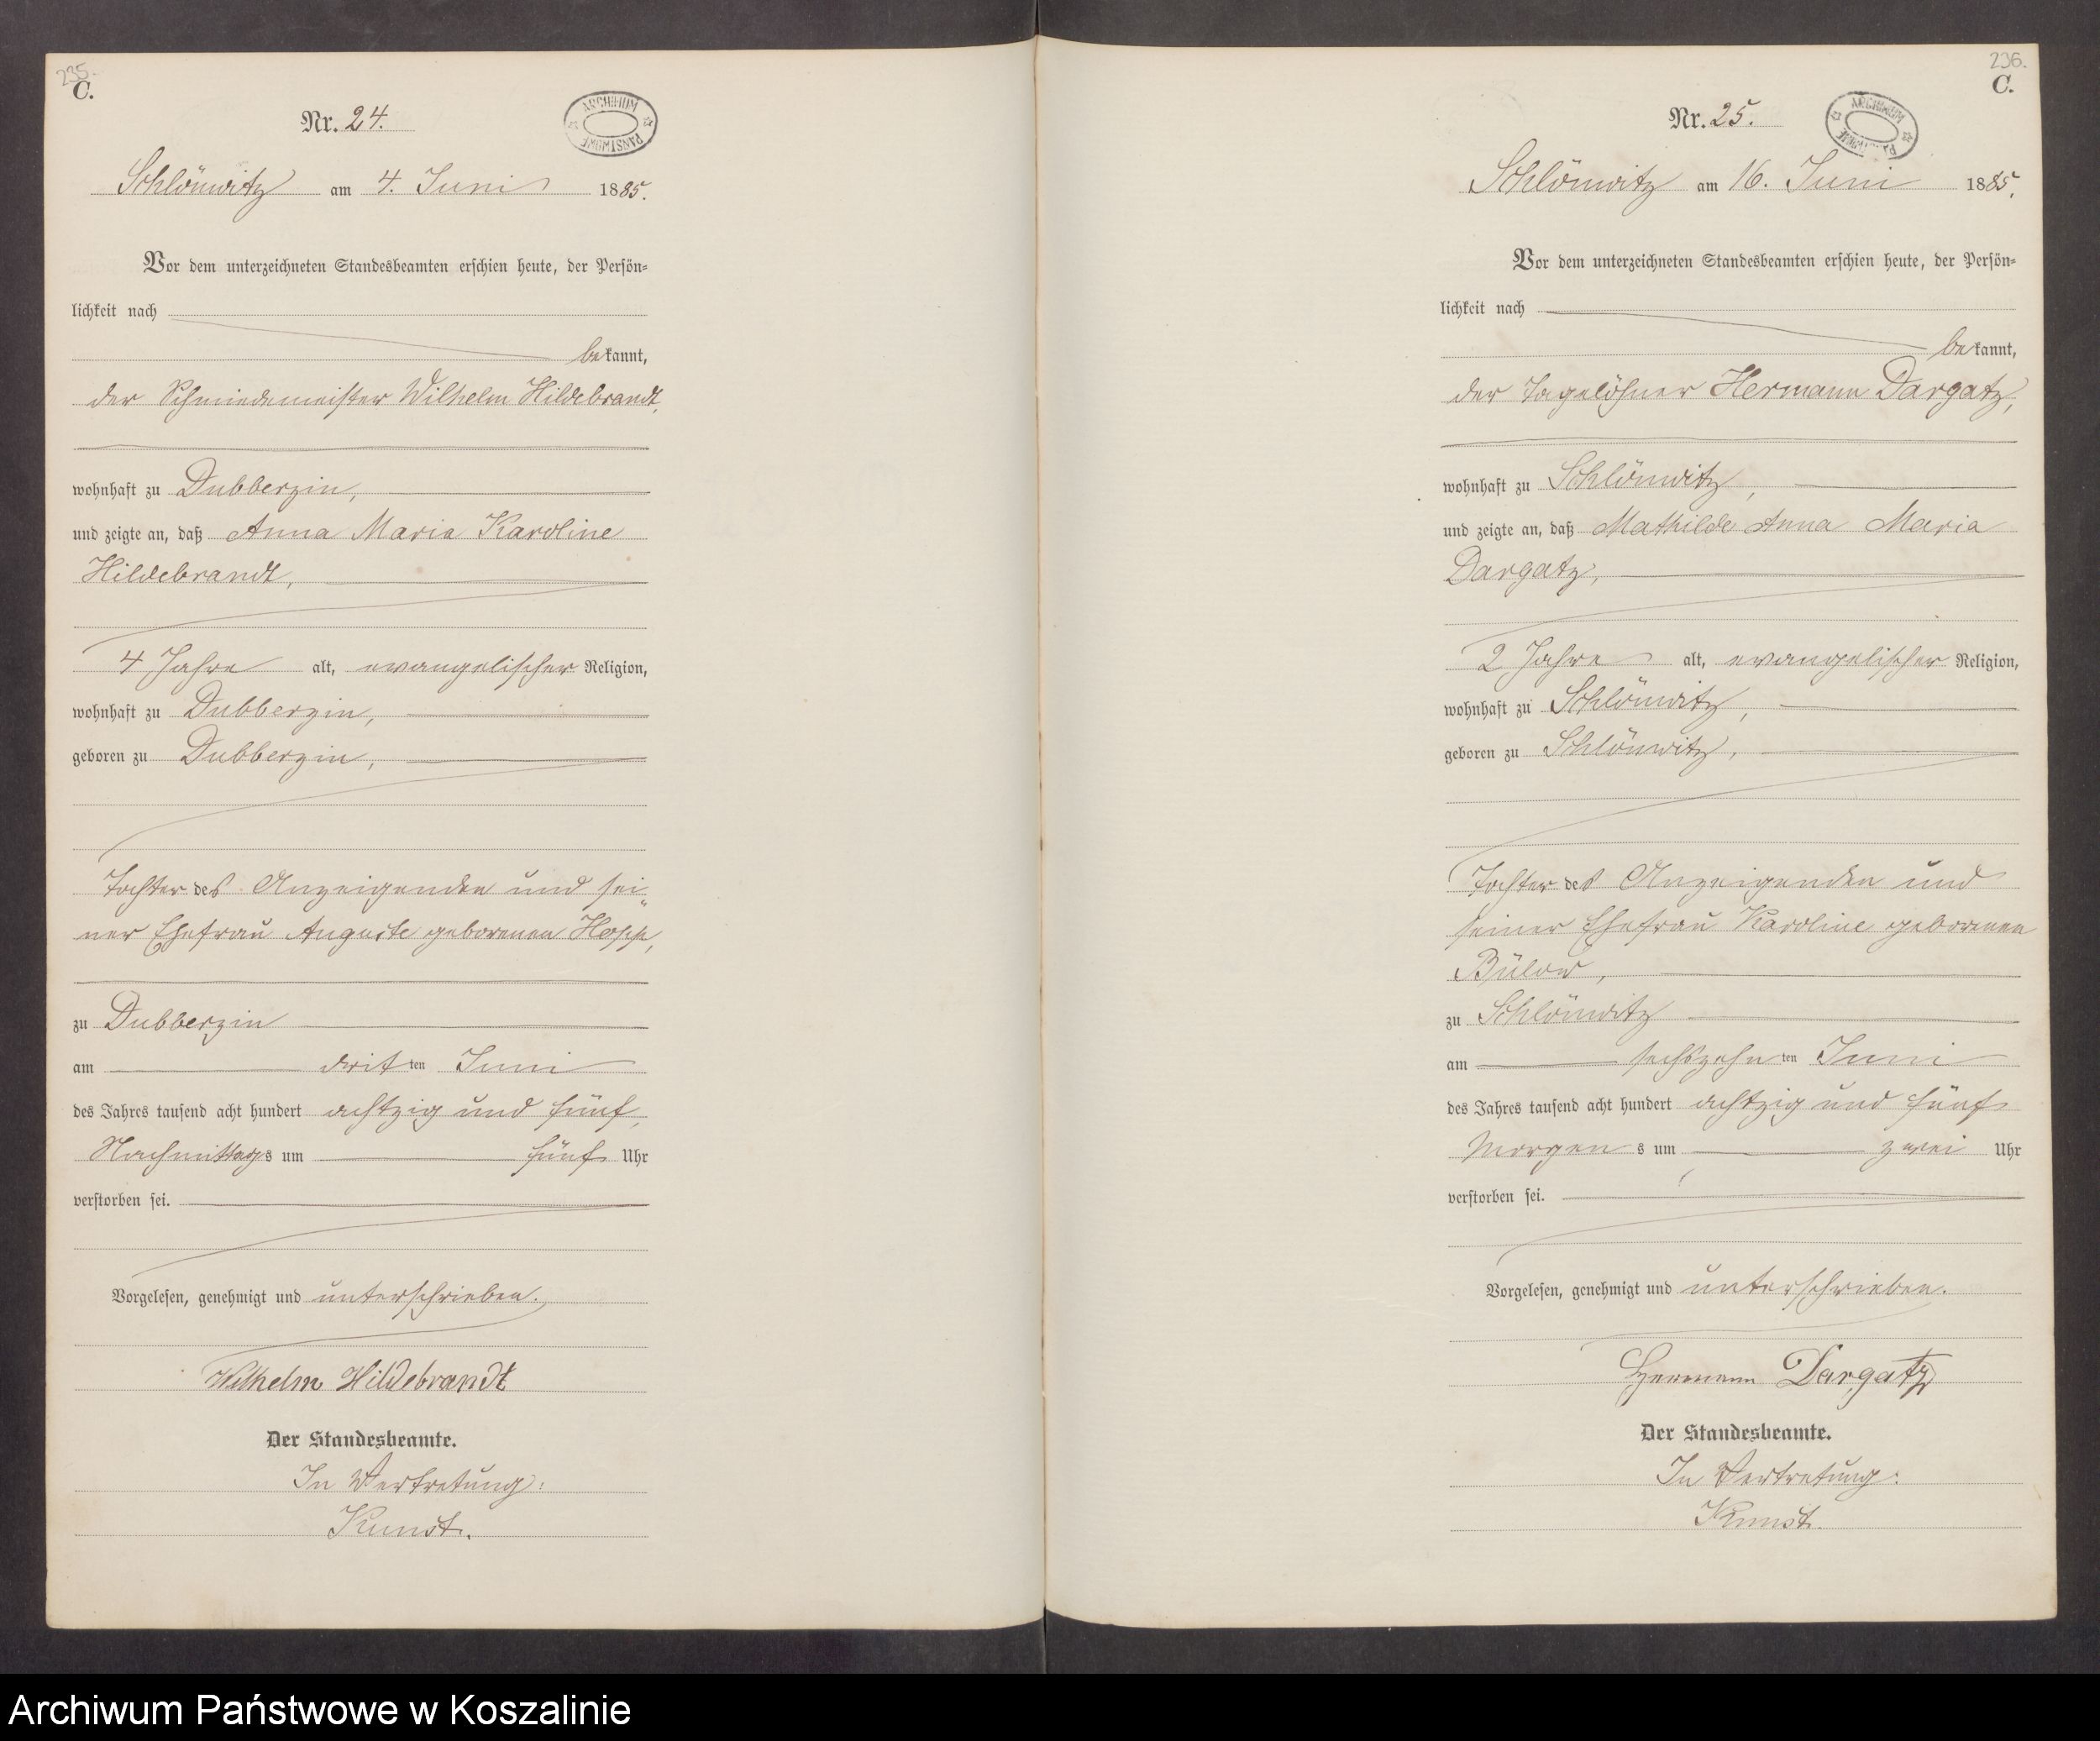 235.
C.
Nr. 24.
ARCHIWUM PAŃSTWOWE
Schlönwitz am 4. Juni 1885.
Vor dem unterzeichneten Standesbeamten erschien heute, der Persön-
lichkeit nach
bekannt,
der Schmiedemeister Wilhelm Hildebrandt,
wohnhaft zu Dubberzin,
und zeigte an, daß Anna Maria Karoline
Hildebrandt,
4 Jahre alt, evangelischer Religion,
wohnhaft zu Dubberzin,
geboren zu Dubberzin,
Tochter des Anzeigenden und sei-
ner Ehefrau Auguste geborenen Hopp,
zu Dubberzin
am dritten Juni
des Jahres tausend acht hundert achtzig und fünf,
Nachmittags um fünf Uhr
verstorben sei.
Vorgelesen, genehmigt und unterschrieben.
Wilhelm Hildebrandt
Der Standesbeamte.
In Vertretung:
Kunst.
236.
C.
Nr. 25.
ARCHIWUM PAŃSTWOWE
Schlönwitz am 16. Juni 1885.
Vor dem unterzeichneten Standesbeamten erschien heute, der Persön-
lichkeit nach
bekannt,
der Tagelöhner Hermann Dargatz,
wohnhaft zu Schlönwitz,
und zeigte an, daß Mathilde Anna Maria
Dargatz,
2 Jahre alt, evangelischer Religion,
wohnhaft zu Schlönwitz,
geboren zu Schlönwitz,
Tochter des Anzeigenden und
seiner Ehefrau Karoline geborenen
Bülow,
zu Schlönwitz
am sechszehnten Juni
des Jahres tausend acht hundert achtzig und fünf
Morgens um zwei Uhr
verstorben sei.
Vorgelesen, genehmigt und unterschrieben.
Hermann Dargatz
Der Standesbeamte.
In Vertretung:
Kunst.
Archiwum Państwowe w Koszalinie